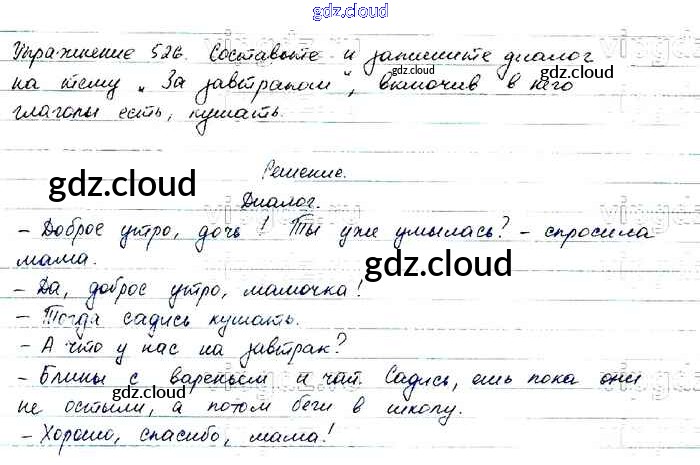 gdz.cloud
Упражнение 526. Составьте и запишите диалог
gdz.cloud
на тему „За завтраком“, включив в него
глаголы есть, кушать.
Решение.
gdz.cloud
Диалог.
– Доброе утро, дочь! Ты уже умылась? – спросила
мама.
gdz.cloud
– Да, доброе утро, мамочка!
– Тогда садись кушать.
– А что у нас на завтрак?
– Блины с вареньем и чай. Садись, ешь пока они
gdz.cloud
gdz.cloud
не остыли, а потом беги в школу.
– Хорошо, спасибо, мама!